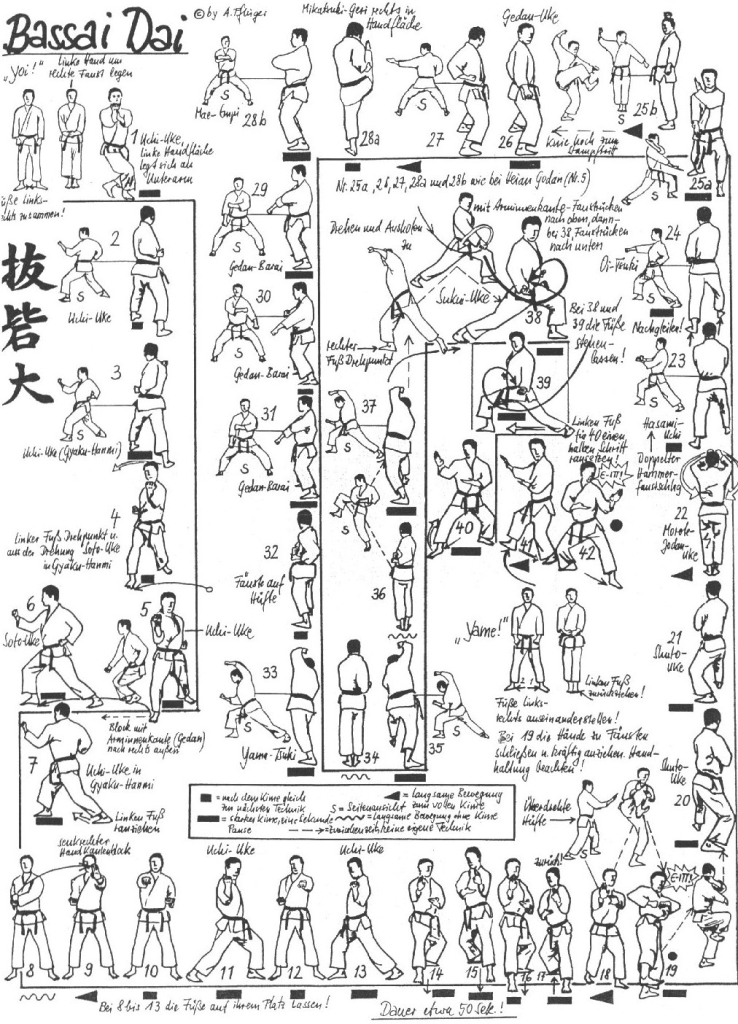 Bassai Dai
© by A. Pflüger
"Yoi!"
Linke Hand um
rechte Faust legen
1
Uchi-Uke,
linke Handfläche
legt sich an
Unterarm
Füße links-
rechts zusammen!
抜砦大
2
S
Uchi-Uke
3
S
Uchi-Uke (Gyaku-Hanmi)
4
Linker Fuß Drehpunkt u.
aus der Drehung Soto-Uke
in Gyaku-Hanmi
5
Uchi-Uke
6
Soto-Uke
Block mit
Arminnenkante (Gedan)
nach rechts außen
7
Uchi-Uke in
Gyaku-Hanmi
Linken Fuß
ranziehen
senkrechter
Handkantenblock
8
9
10
Uchi-Uke
11
12
Uchi-Uke
13
14
15
16
zurück!
17
18
19
E-IT!!
Bei 8 bis 13 die Füße auf ihrem Platz lassen!
Dauer etwa 50 Sek.!
Überdrehte
Hüfte
S
Shuto-
Uke
20
21
Shuto-
Uke
22
Morote-
Jodan-
Uke
Hasami-
Uchi
Doppelter
Hammer-
faustschlag
23
S
Nachgleiten!
24
Oi-Tsuki
S
25a
S
25b
S
Knie hoch zum
Stampftritt
Gedan-Uke
26
27
S
Mikatsuki-Geri rechts in
Handfläche
28a
28b
Mae-Empi
S
Nr. 25a, 26, 27, 28a und 28b wie bei Heian Godan (Nr. 5)
29
S
Gedan-Barai
30
S
Gedan-Barai
31
S
Gedan-Barai
32
Fäuste auf
Hüfte
33
S
Yama-Tsuki
34
35
S
36
37
S
S
Drehen und Ausholen
zu
rechter
Fuß Drehpunkt
Sukui-Uke
38
mit Arminnenkante-Faustrücken
nach oben, dann
bei 38 Faustrücken
nach unten
Bei 38 und
39 die Füße
stehen-
lassen!
39
Linken Fuß
für 40 einen
halben Schritt
ransetzen!
40
41
42
E-IT!!
"Yame!"
Linken Fuß
zurückziehen!
Füße links-
rechts auseinanderstellen!
Bei 19 die Hände zu Fäusten
schließen u. kräftig anziehen. Hand-
haltung beachten!
= nach dem Kime gleich
zur nächsten Technik
= starkes Kime, eine Sekunde
Pause
= langsame Bewegung
zum vollen Kime
S = Seitenansicht
= langsame Bewegung ohne Kime
= Zwischenschritt/keine eigene Technik